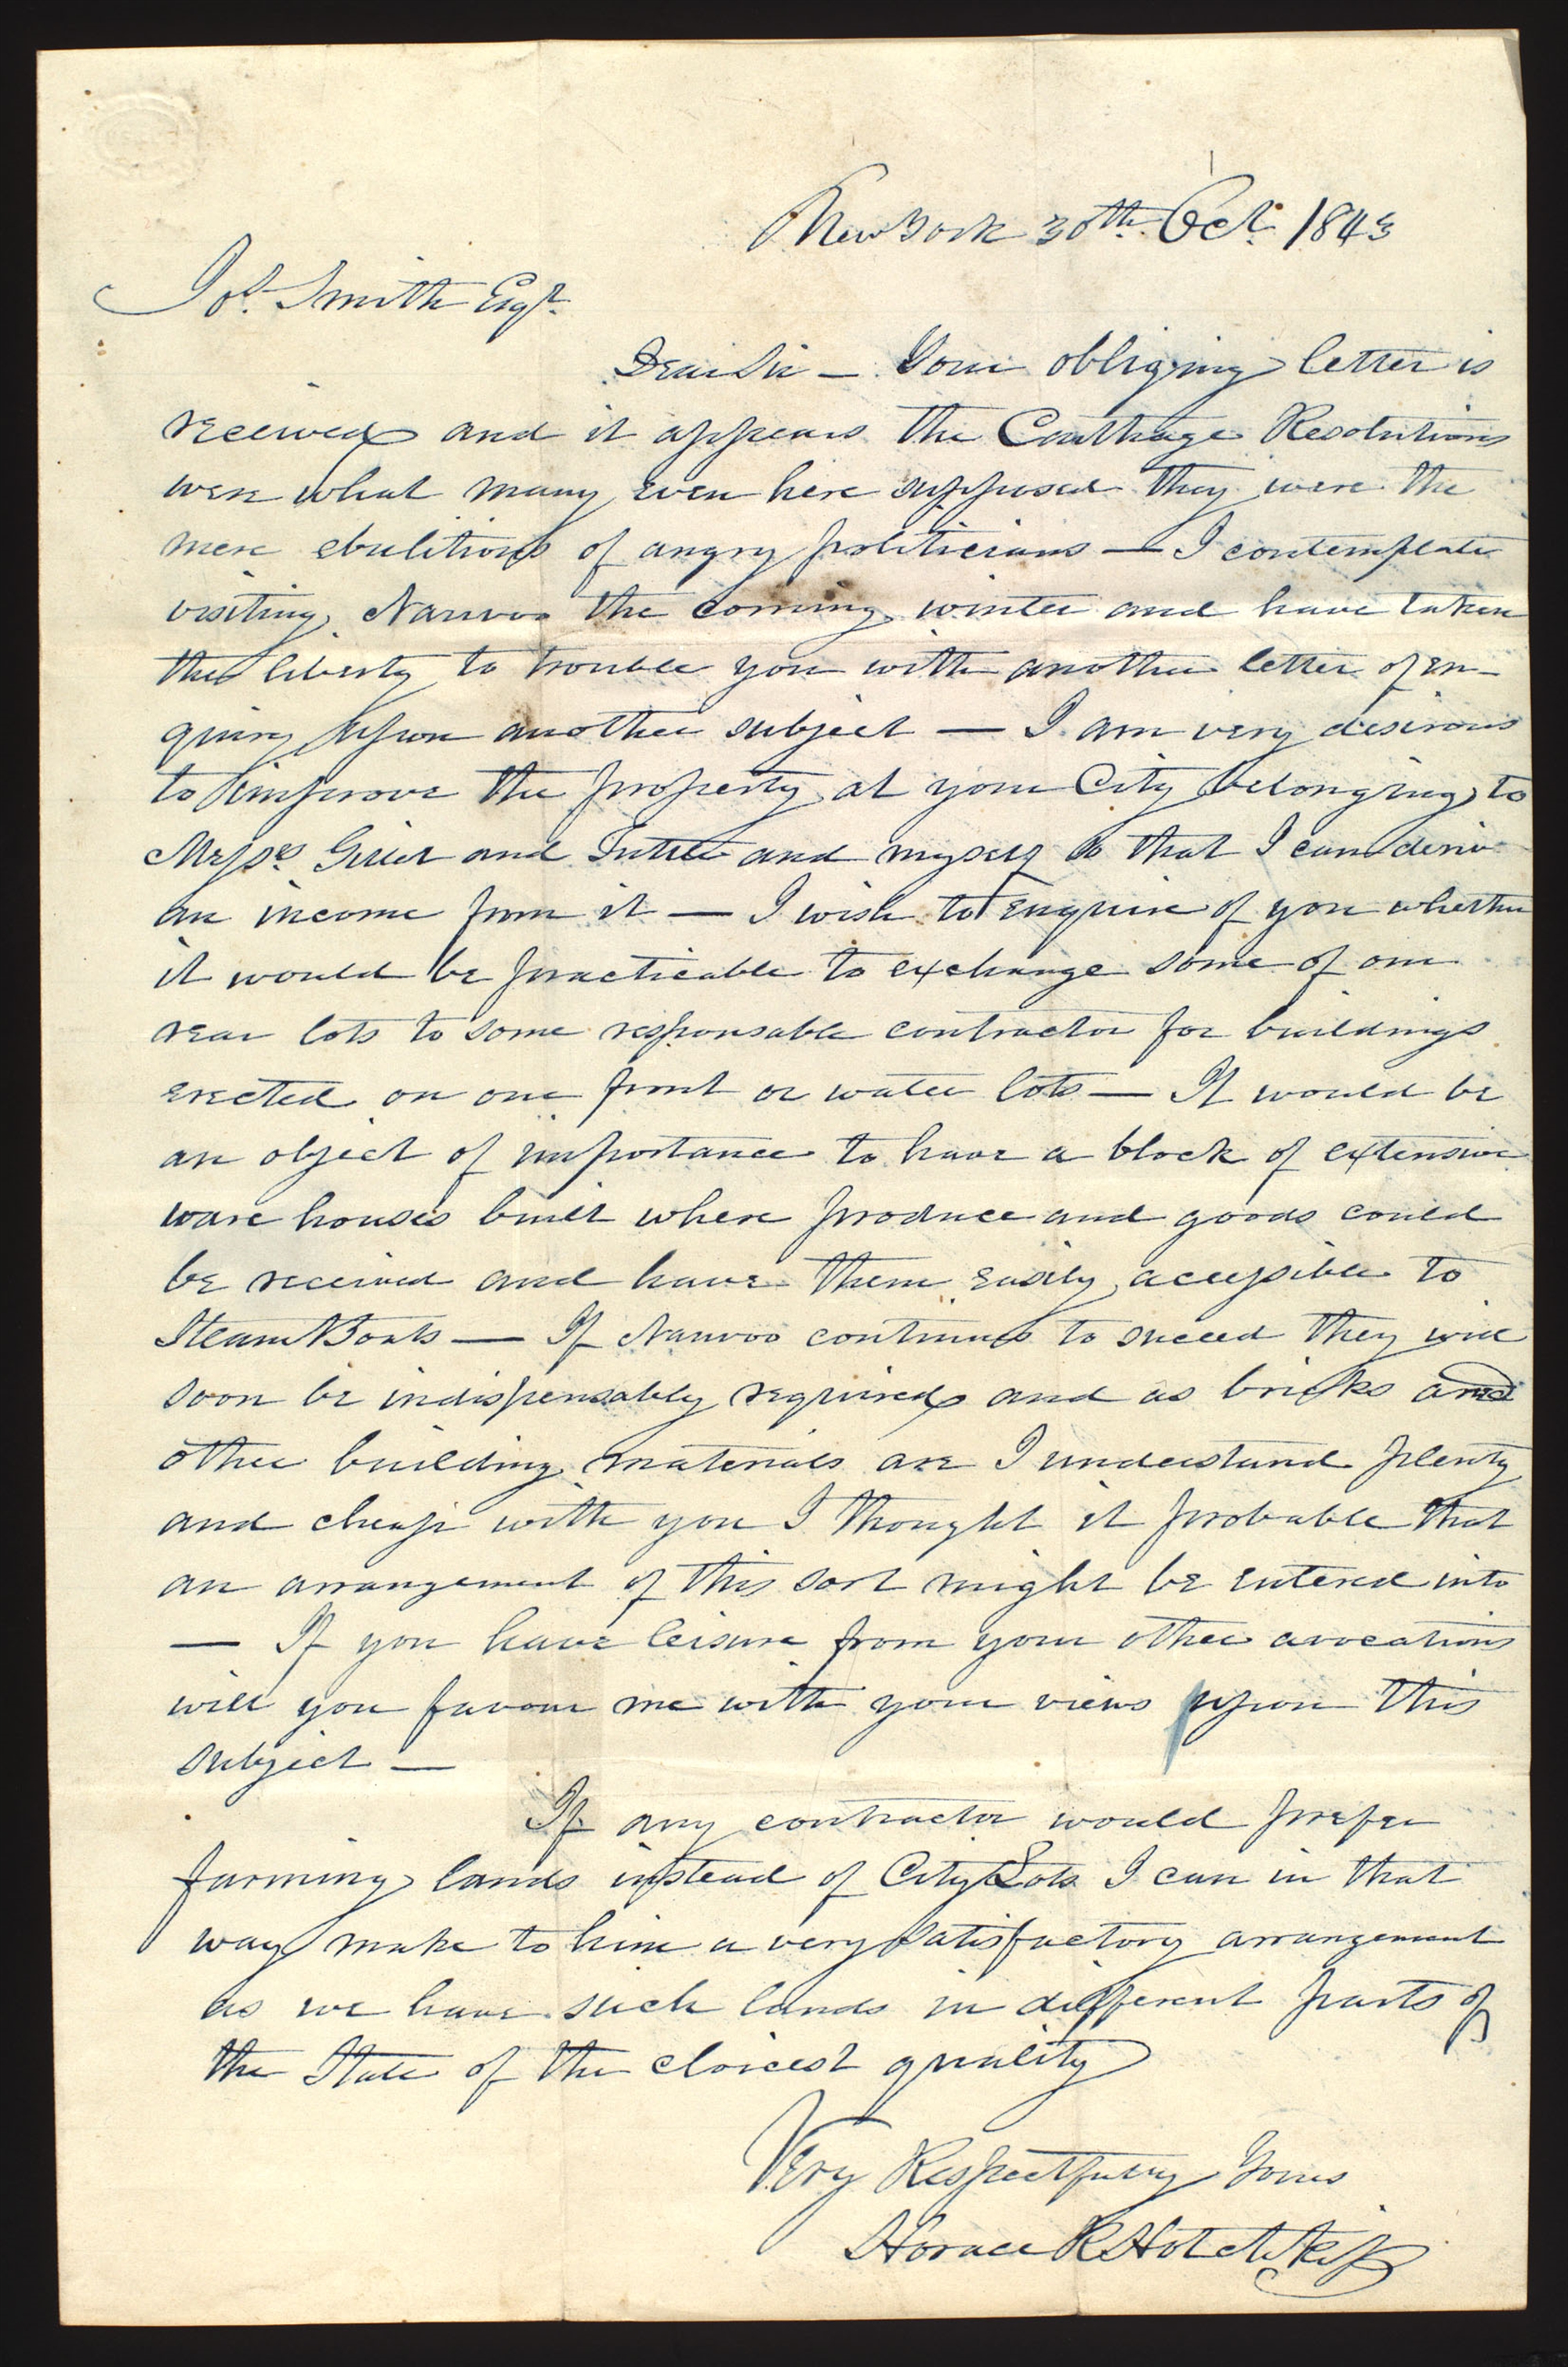 New York 30th Oct. 1843
Jos. Smith Esqr.
Dear Sir — Your obliging letter is
received and it appears the Carthage Resolutions
were what many even here supposed they were the
mere ebulitions of angry politicians — I contemplate
visiting Nauvoo the coming winter and have taken
the liberty to trouble you with another letter of en-
quiry upon another subject — I am very desirous
to improve the property at your City belonging to
Messrs. Gillet and Tuttle and myself so that I can derive
an income from it — I wish to enquire of you whether
it would be practicable to exchange some of our
rear lots to some responsable contractor for buildings
erected on our front or water lots — It would be
an object of importance to have a block of extensive
ware houses built where produce and goods could
be received and have them easily accessible to
Steam Boats — If Nauvoo continues to suceed they will
soon be indispensably required and as bricks and
other building materials are I understand plenty
and cheap with you I thought it probable that
an arrangement of this sort might be entered into
— If you have leisure from your other avocations
will you favour me with your views upon this
subject —
If any contractor would prefer
farming lands instead of City Lots I can in that
way make to him a very satisfactory arrangement
as we have such lands in different parts of
the State of the cloicest quality
Very Respectfully Yours
Horace R Hotchkiss